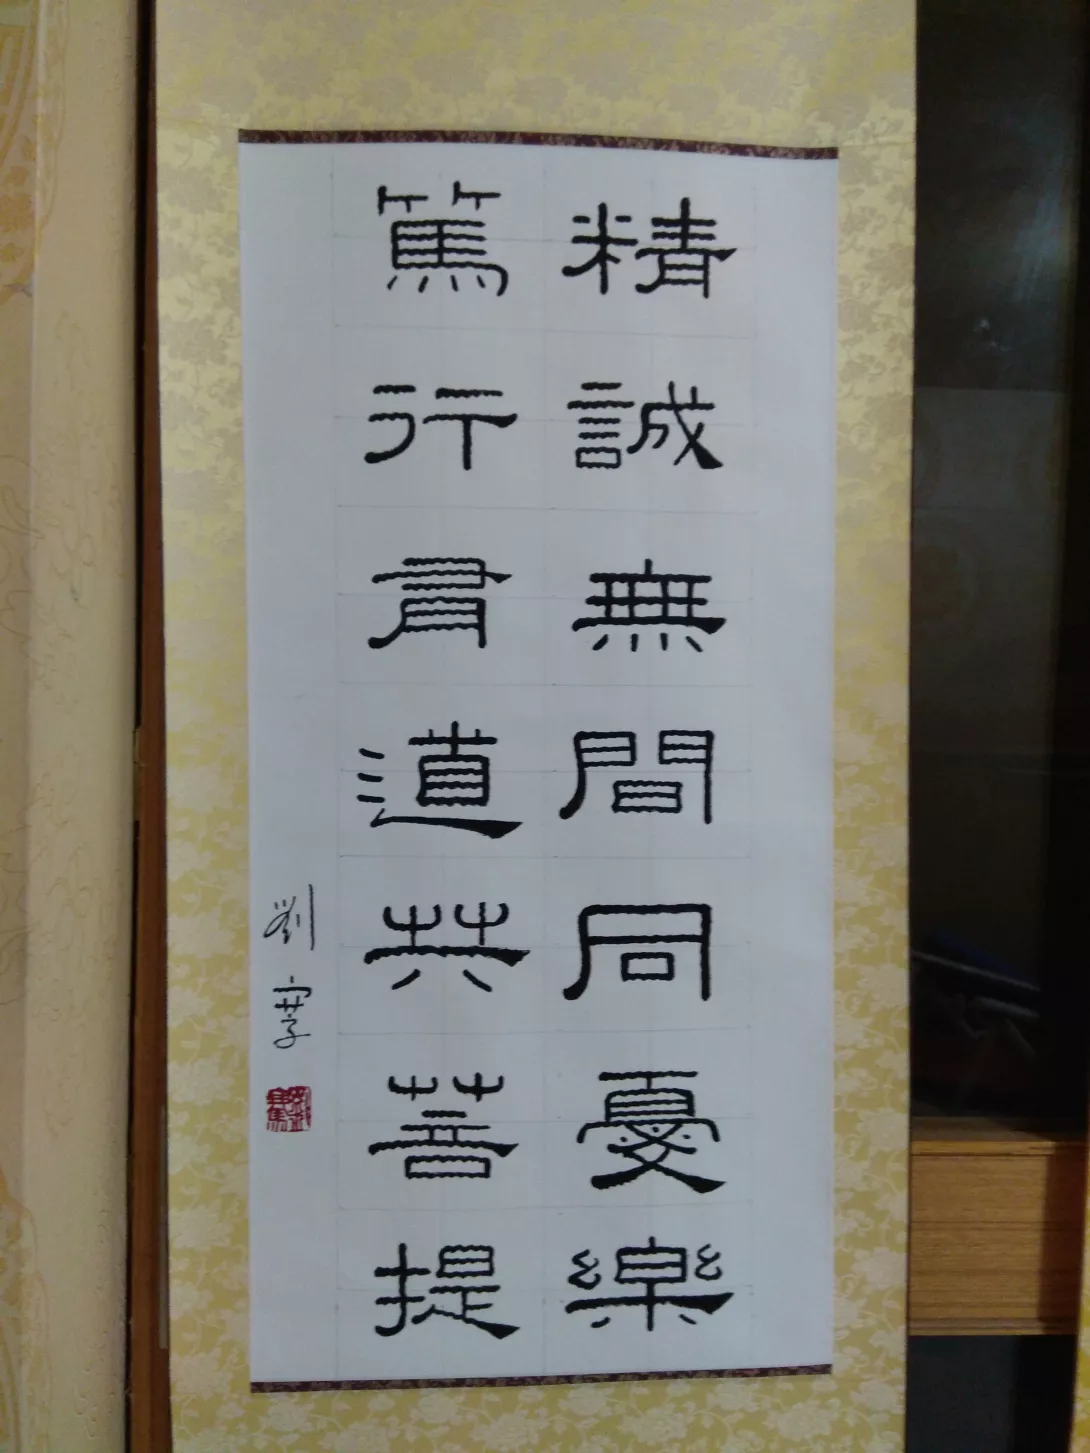 精誠無間同憂樂
篤行有道共菩提